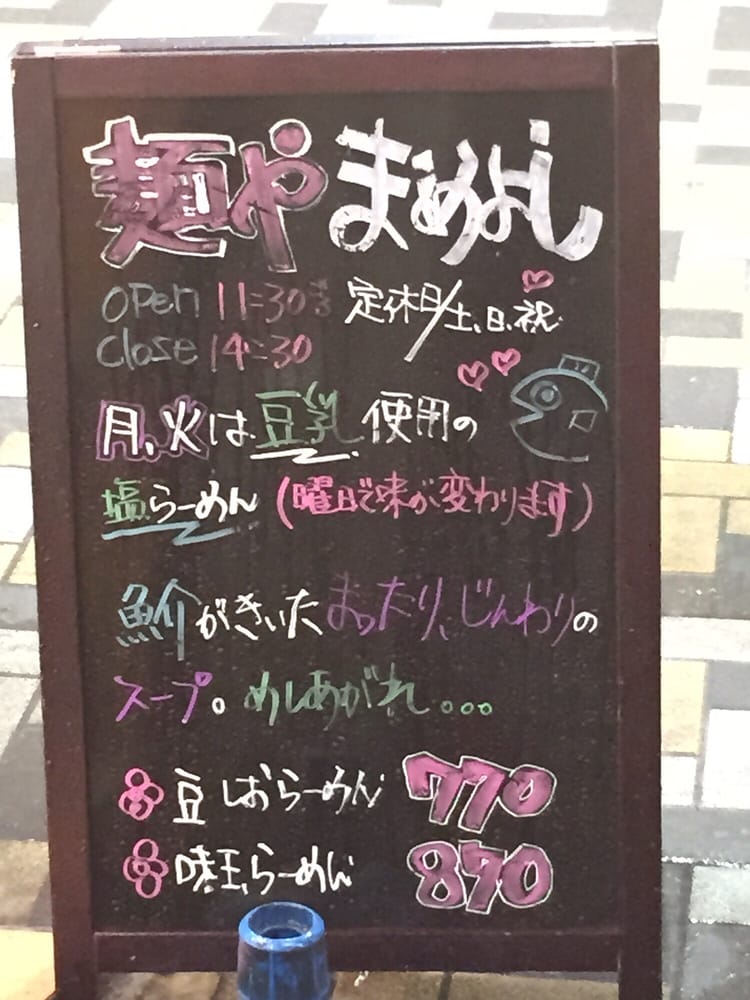 麺や まめよし
open 11:30 定休日/土、日、祝
close 14:30
月、火は豆乳使用の
塩らーめん (曜日で味が変わります)
魚介がきいたまったり、じんわりの
スープ。めしあがれ。。。
豆しおらーめん 770
味玉らーめん 870